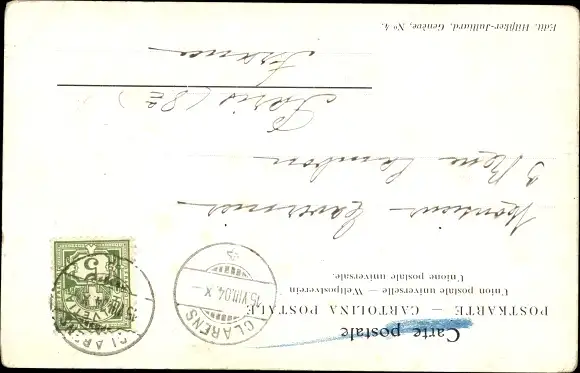 Carte postale
POSTKARTE — CARTOLINA POSTALE
Union postale universelle — Weltpostverein
Unione postale universale.
CLARENS
15.VIII.04.X
5
Monsieur
3 Rue Cambon
Paris (8e)
France
Edit. Hilfiker-Julliard, Genève, No 4.